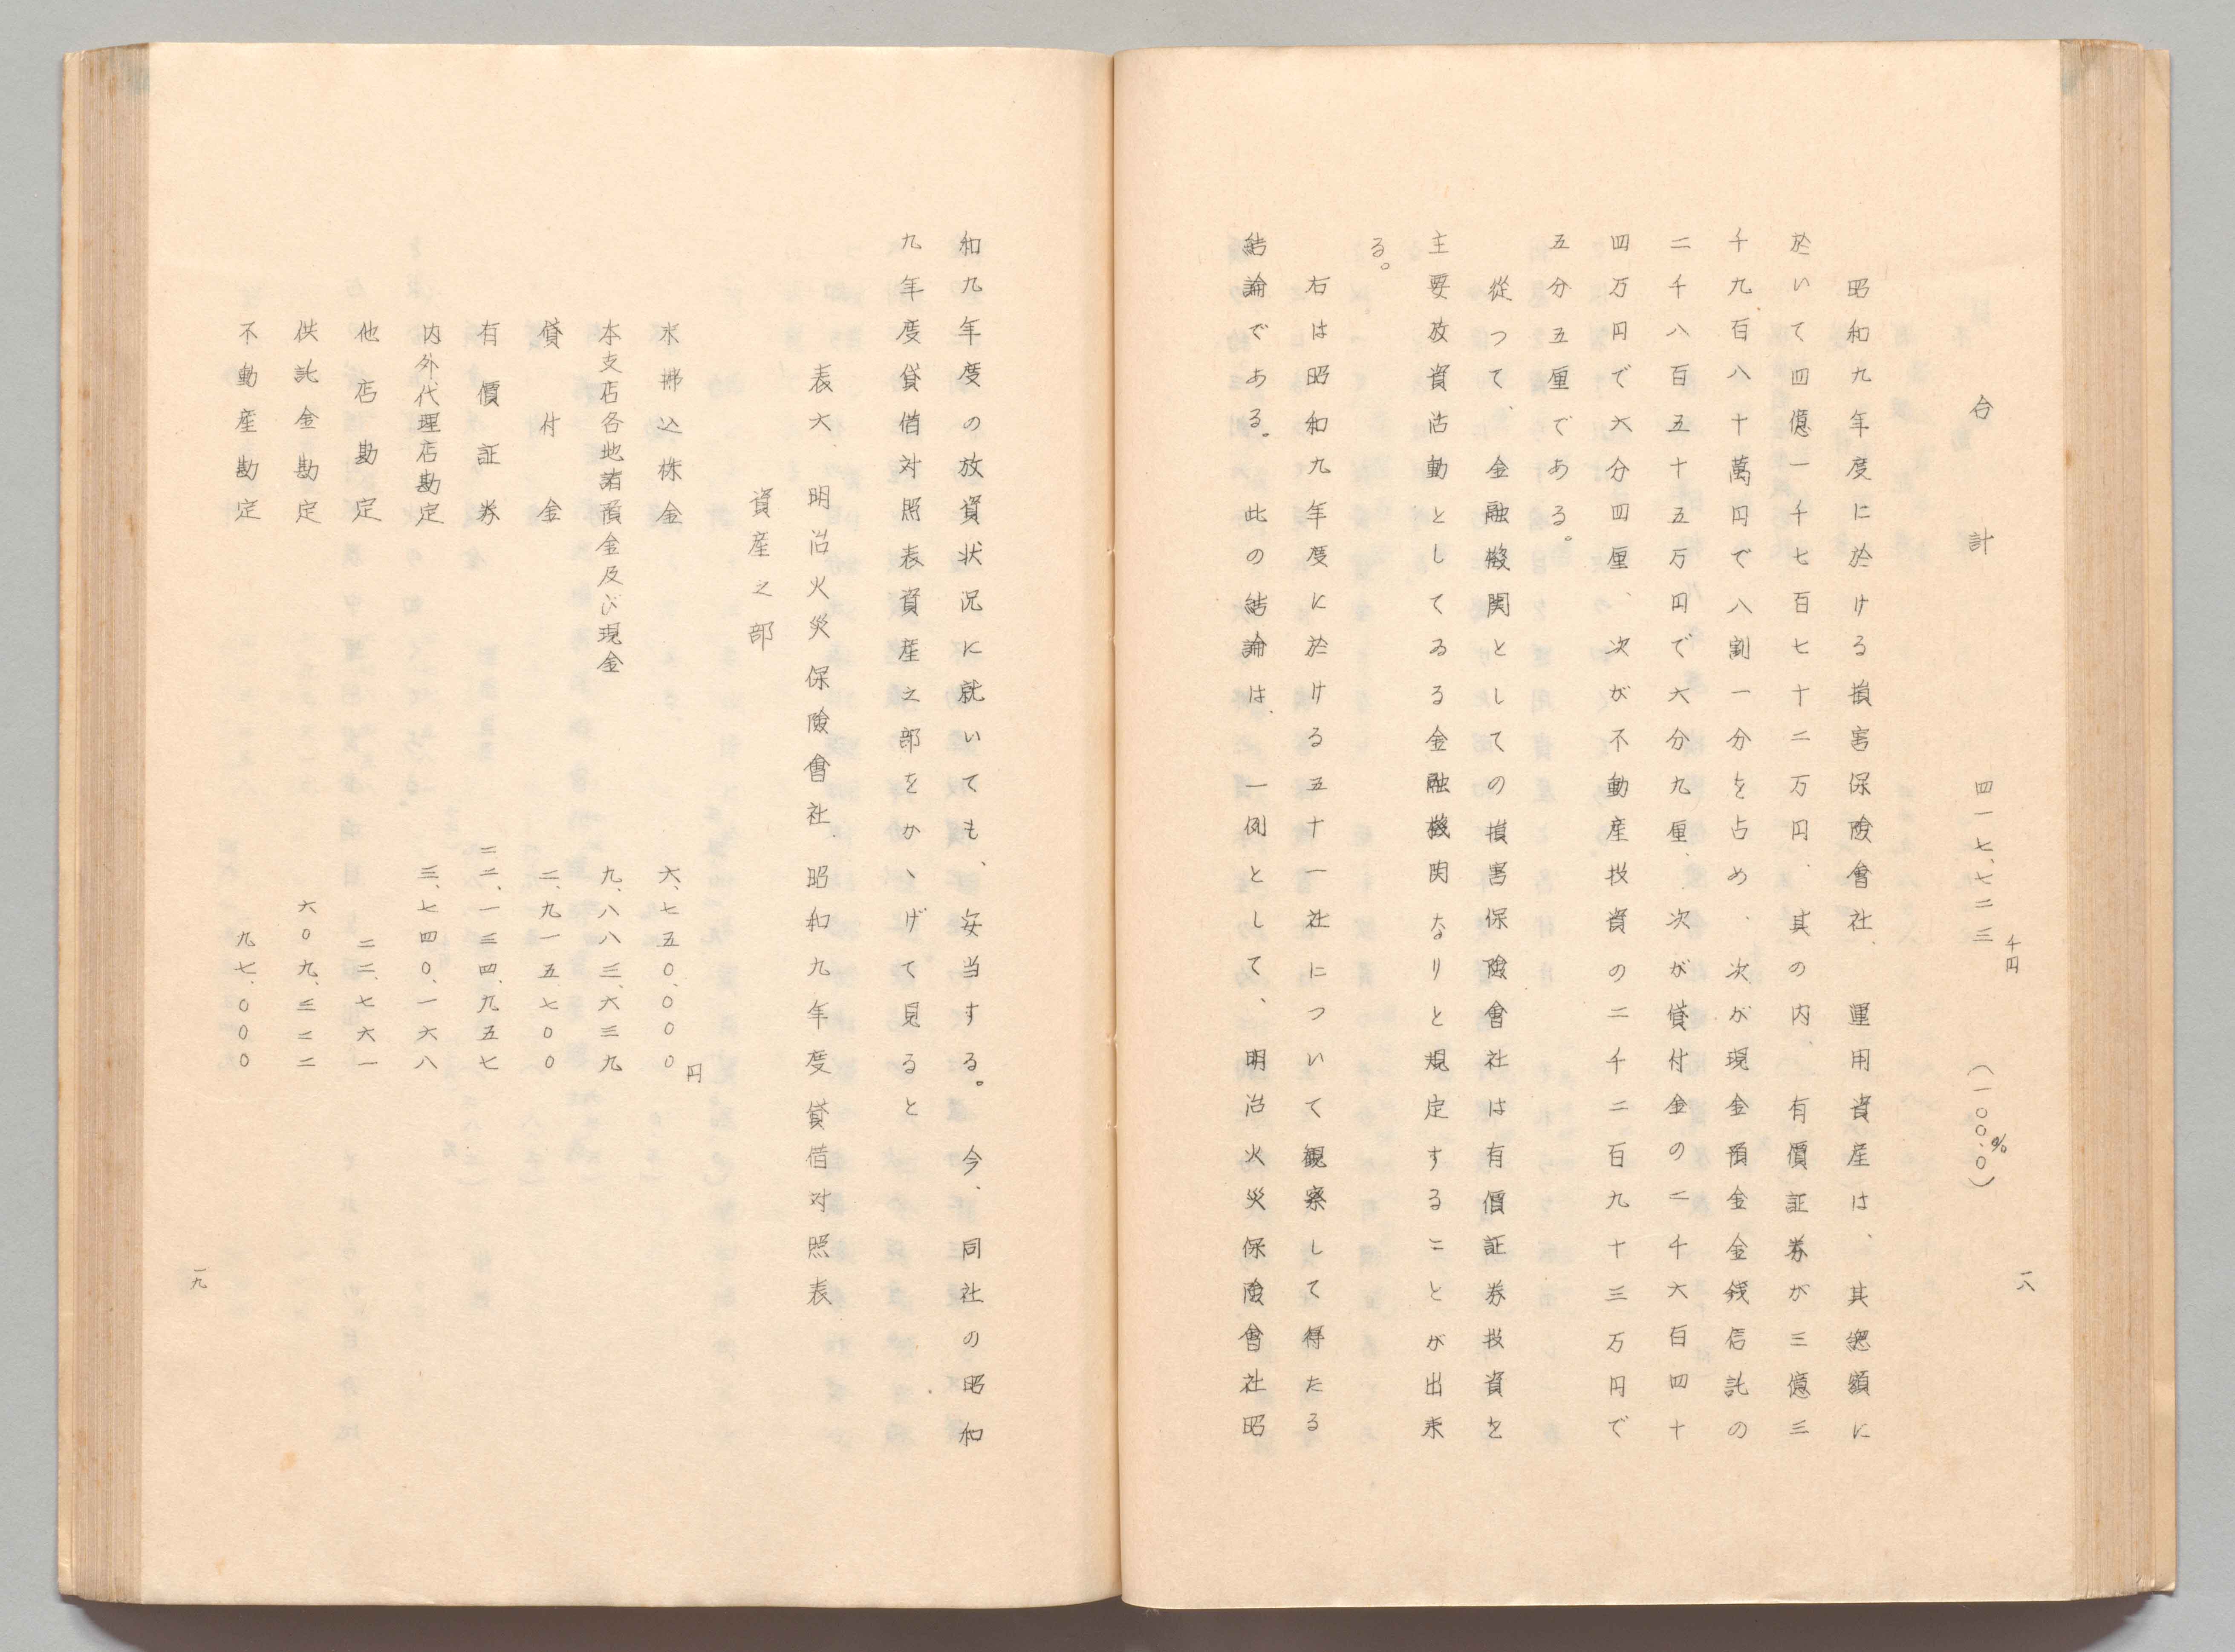 一八
合計 四一七、七二三千円 (一〇〇.〇%)
昭和九年度に於ける損害保険會社、運用資産は、其総額に
於いて四億一千七百七十二万円、其の内、有價証券が三億三
千九百八十萬円で八割一分を占め、次が現金預金金銭信託の
二千八百五十五万円で六分九厘、次が貸付金の二千六百四十
四万円で六分四厘、次が不動産投資の二千二百九十三万円で
五分五厘である。
從つて、金融機関としての損害保険會社は有價証券投資を
主要放資活動としてゐる金融機関なりと規定することが出来
る。
右は昭和九年度に於ける五十一社について観察して得たる
結論である。此の結論は、一例として、明治火災保険會社昭
和九年度の放資状況に就いても、妥当する。今、同社の昭和
九年度貸借対照表資産之部をかゝげて見ると
表六、明治火災保険會社、昭和九年度貸借対照表
資産之部
未拂込株金 六、七五〇、〇〇〇円
本支店各地諸預金及び現金 九、八八三、六三九
貸付金 二、九一五、七〇〇
有價証券 二二、一三四、九五七
内外代理店勘定 三、七四〇、一六八
他店勘定 二二、七六一
供託金勘定 六〇九、三二二
不動産勘定 九七、〇〇〇
一九